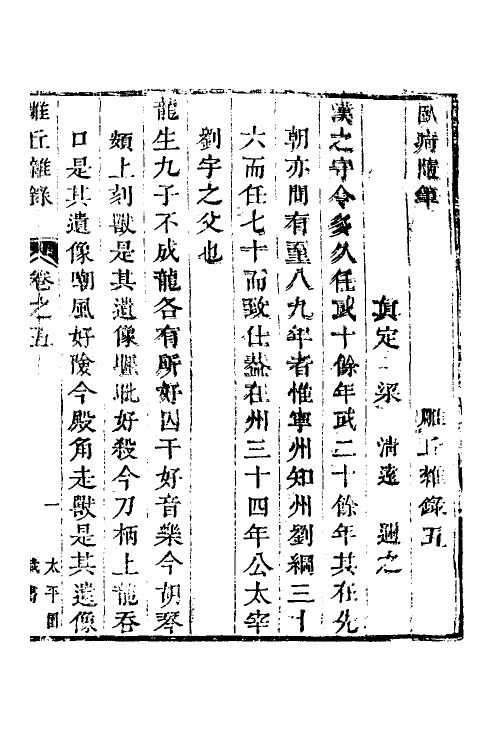 臥疴隨筆　雕丘雜錄五
真定　梁　清遠　邇之
漢之守令多久任或十餘年或二十餘年其在先
朝亦間有至八九年者惟寧州知州劉綱三十
六而任七十而致仕葢在州三十四年公太宰
劉宇之父也
龍生九子不成龍各有所好囚牛好音樂今胡琴
頭上刻獸是其遺像睚眦好殺今刀柄上龍吞
口是其遺像嘲風好險今殿角走獸是其遺像
雕丘雜錄　卷之五　一　太平園
藏書